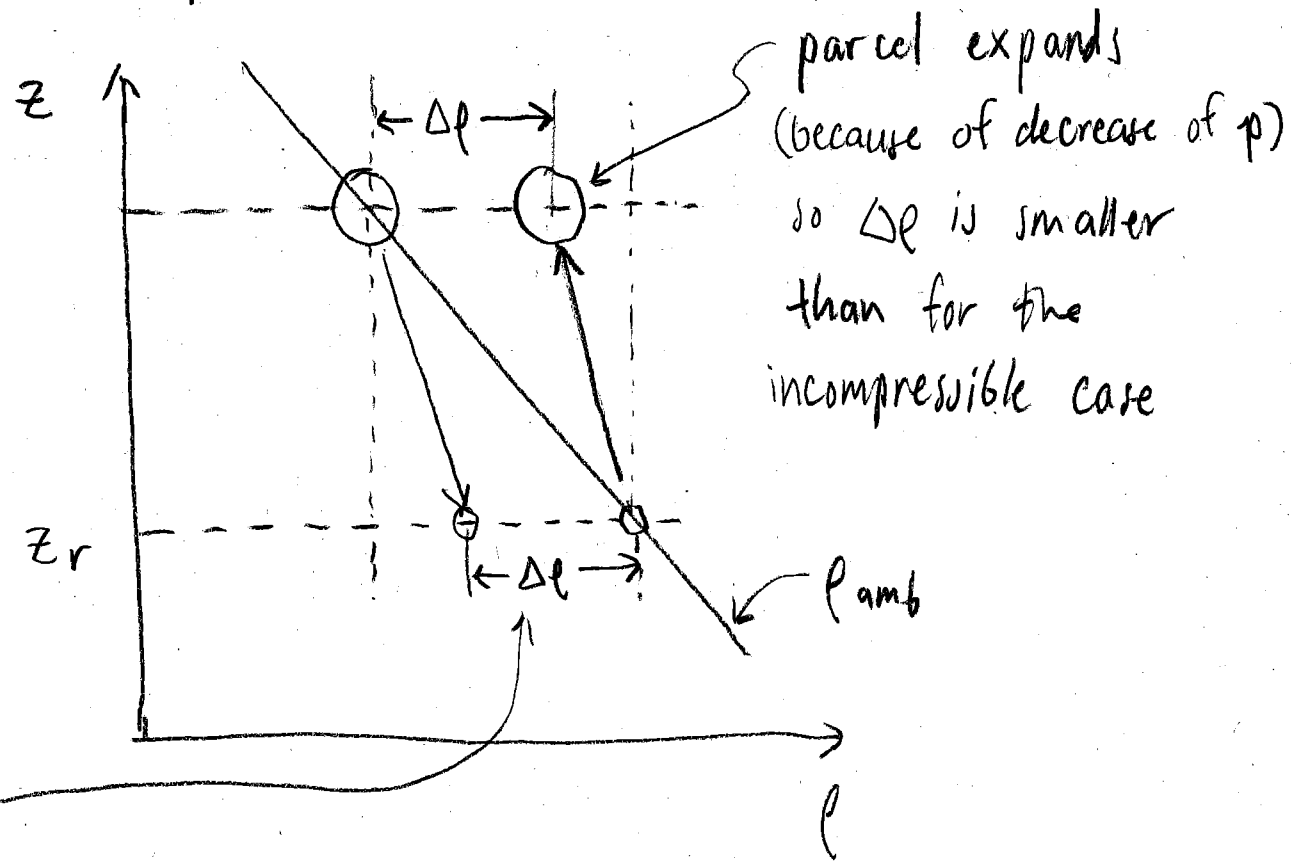 parcel expands
(because of decrease of p)
so Δρ is smaller
than for the
incompressible case
z
← Δρ →
z_r
← Δρ →
ρ amb
ρ